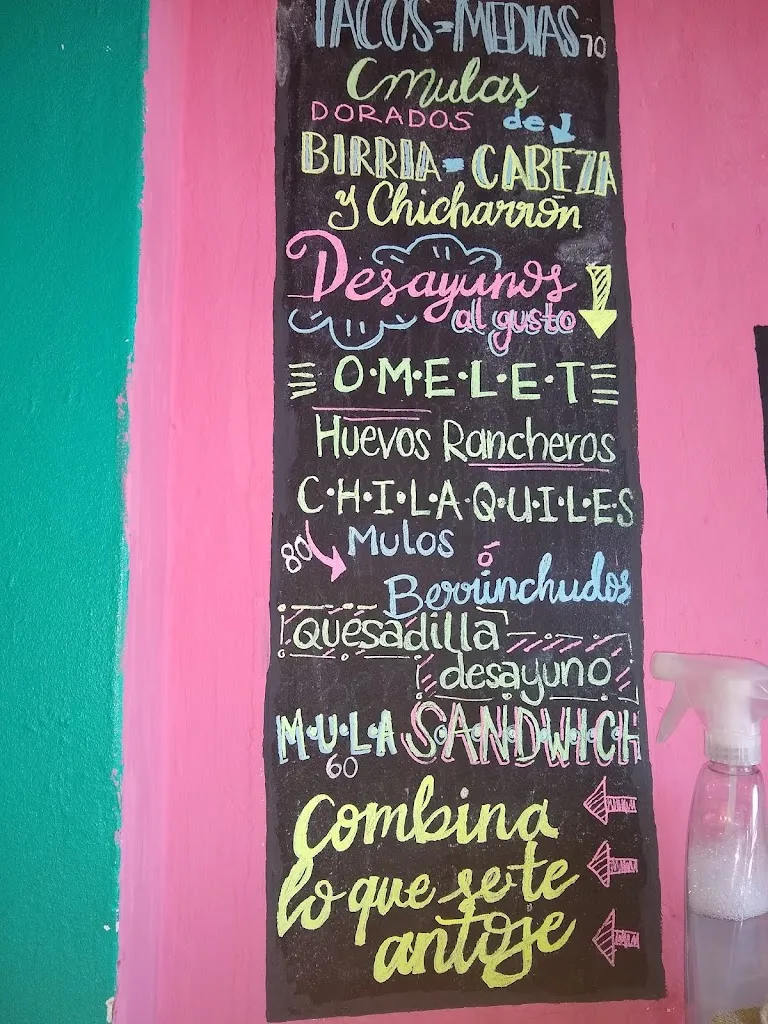 TACOS=MEDIAS 70
Cmulas
DORADOS de
BIRRIA=CABEZA
y Chicharrón
Desayunos
al gusto
O·M·E·L·E·T
Huevos Rancheros
C·H·I·L·A·Q·U·I·L·E·S
80 Mulos ó
Berrinchudos
Quesadilla
desayuno
M·U·L·A SANDWICH
60
Combina
lo que se te
antoje